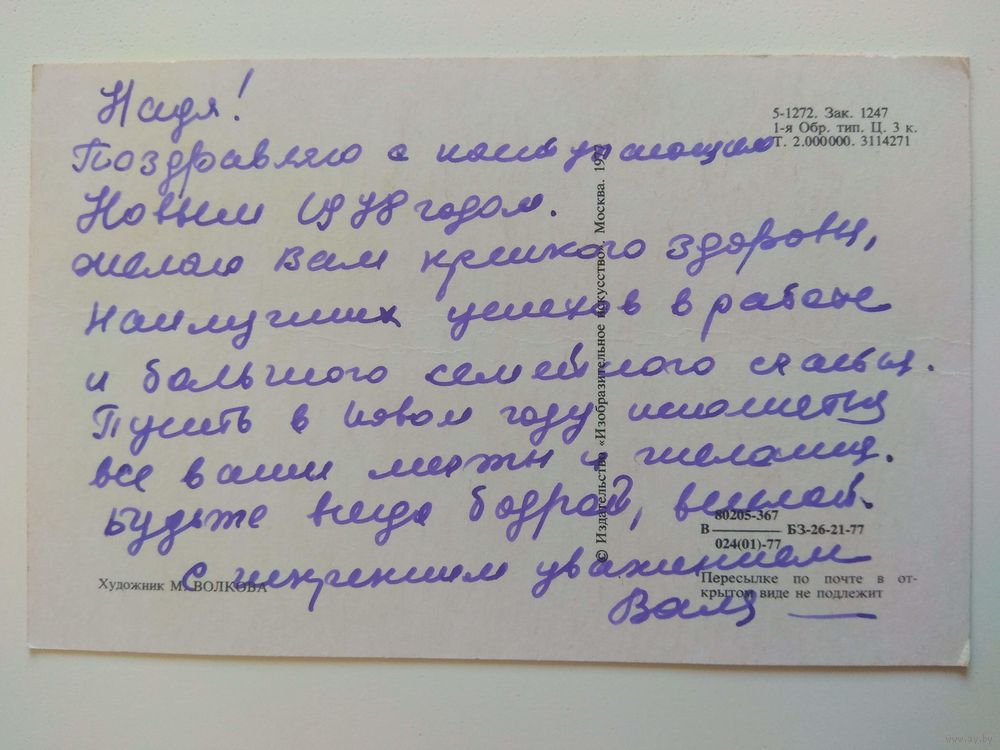 Надя!
Поздравляю с наступающим
Новым 1978 годом.
Желаю Вам крепкого здоровья,
наилучших успехов в работе
и большого семейного счастья.
Пусть в Новом году исполнятся
все ваши мечты и желания.
Будьте всегда бодрой, веселой.
С искренним уважением
Валя
5-1272. Зак. 1247
1-я Обр. тип. Ц. 3 к.
Т. 2.000000. 3114271
© Издательство «Изобразительное искусство». Москва. 1977
80205-367
В ——— БЗ-26-21-77
024(01)-77
Пересылке по почте в от-
крытом виде не подлежит
Художник М. ВОЛКОВА
www.ay.by